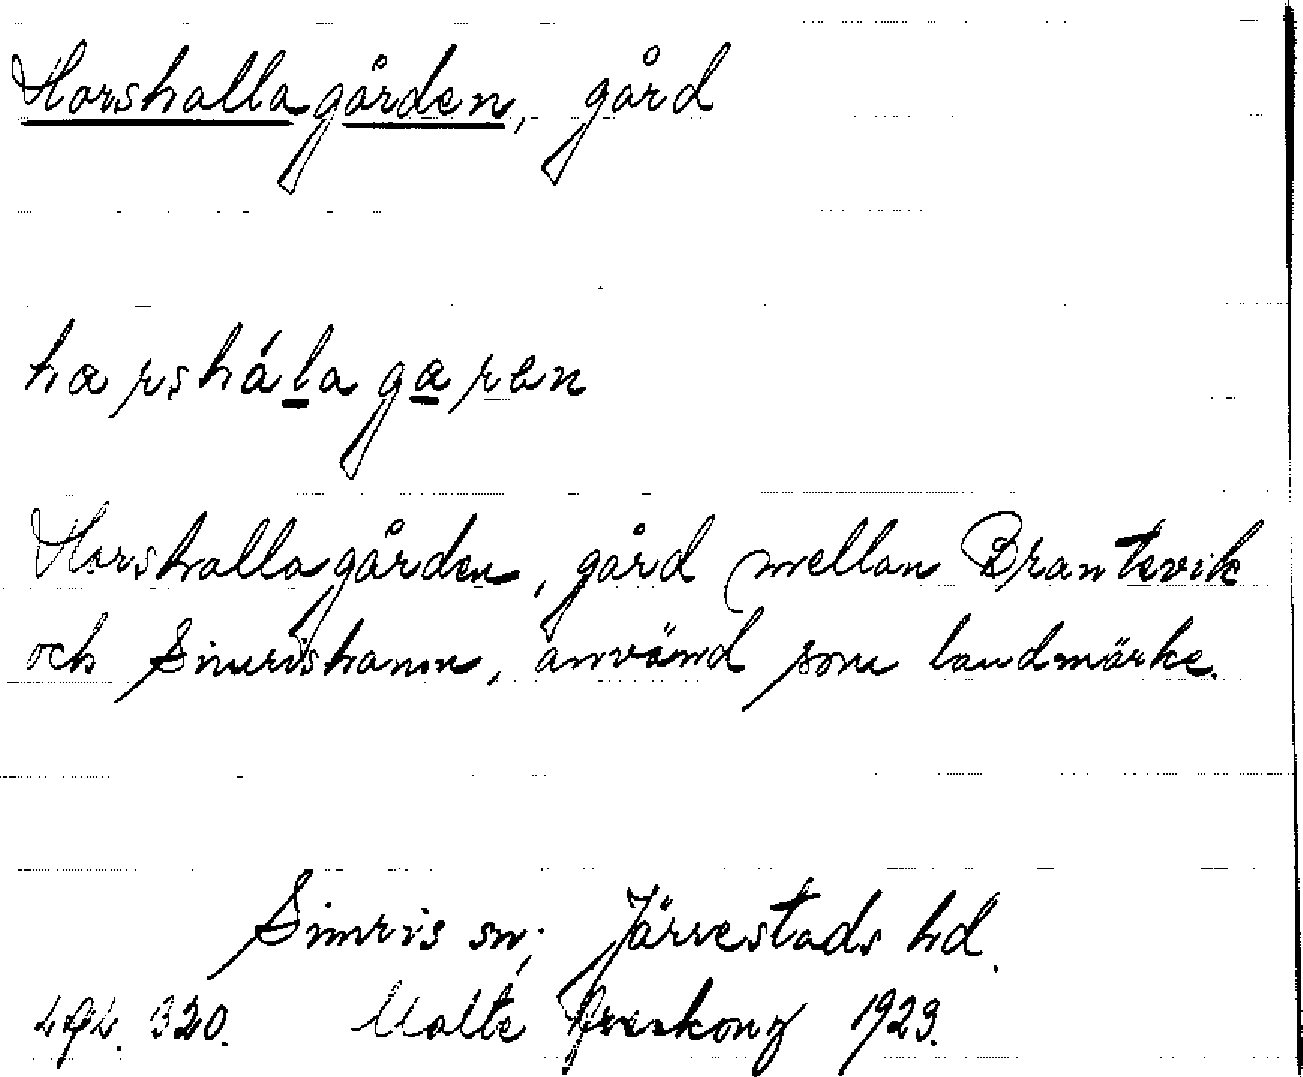 Horshallagården, gård
harshálagaren
Horshallagården, gård mellan Brantevik
och Simrishamn, använd som landmärke.
Simris sn; Järrestads hd.
320. Malte 1923.